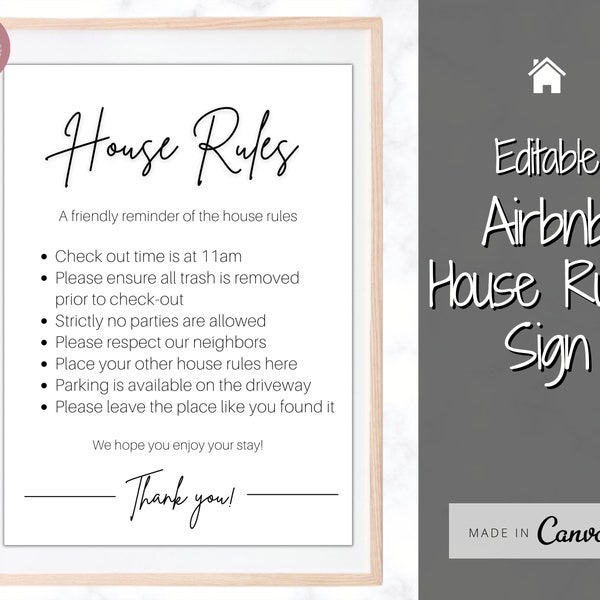 House Rules
A friendly reminder of the house rules
• Check out time is at 11am
• Please ensure all trash is removed
prior to check-out
• Strictly no parties are allowed
• Please respect our neighbors
• Place your other house rules here
• Parking is available on the driveway
• Please leave the place like you found it
We hope you enjoy your stay!
Thank you!
Editable
Airbnb
House Ru
Sign
MADE IN Canv